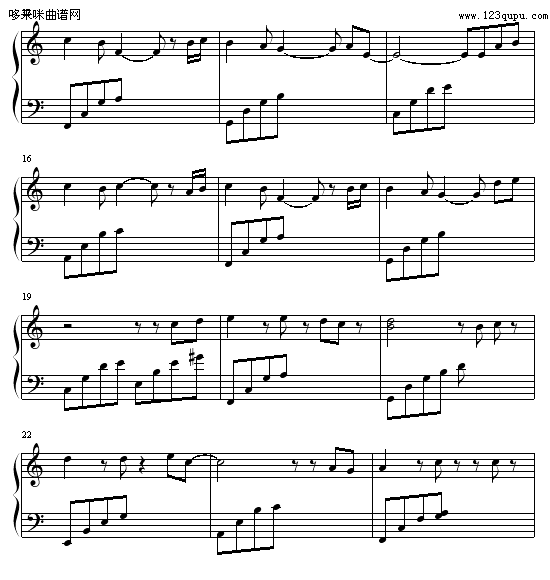 哆来咪曲谱网
www.123qupu.com
16
19
22